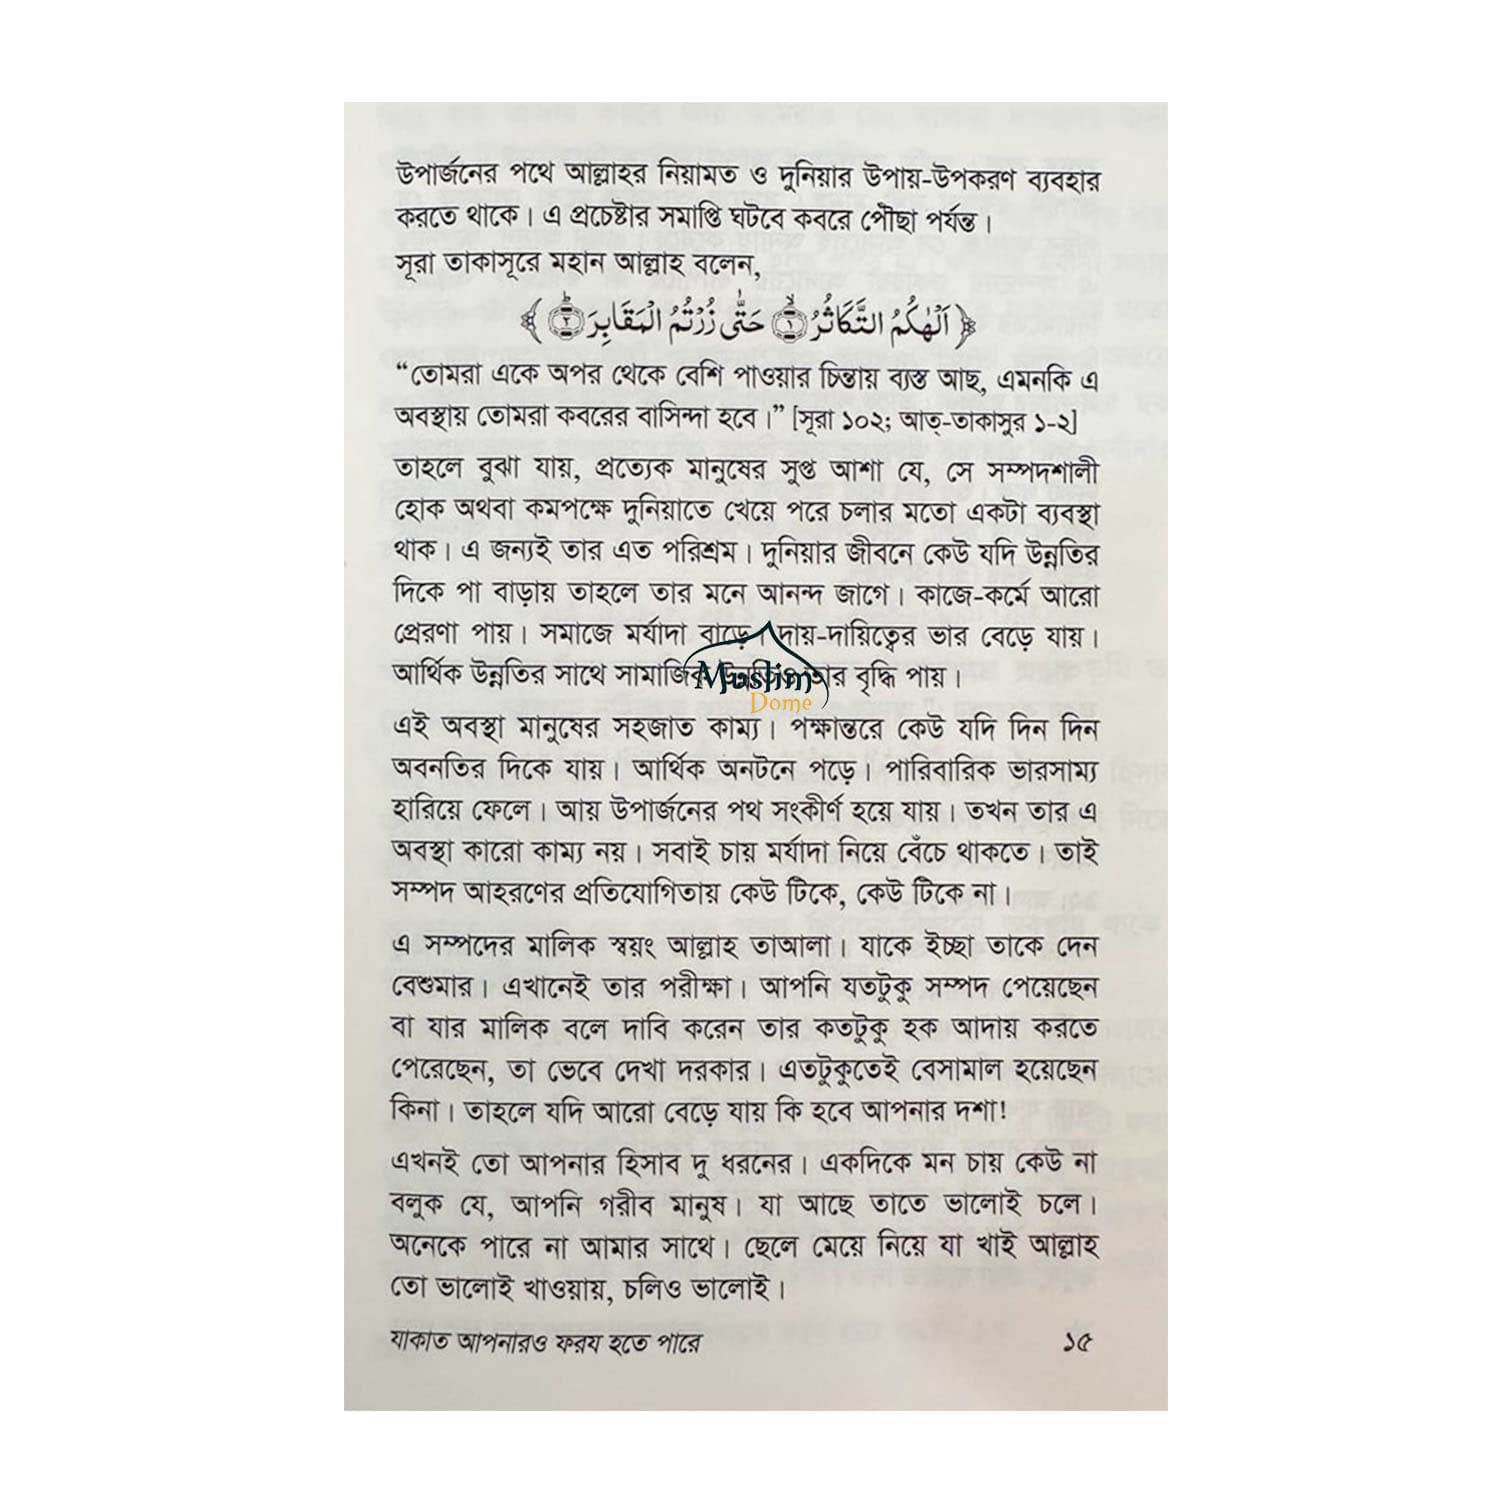 উপার্জনের পথে আল্লাহর নিয়ামত ও দুনিয়ার উপায়-উপকরণ ব্যবহার
করতে থাকে। এ প্রচেষ্টার সমাপ্তি ঘটবে কবরে পৌঁছা পর্যন্ত।
সূরা তাকাসূরে মহান আল্লাহ বলেন,
﴿اَلْهٰكُمُ التَّكَاثُرُ ۙ﴿١﴾ حَتّٰى زُرْتُمُ الْمَقَابِرَ ؕ﴿٢﴾﴾
“তোমরা একে অপর থেকে বেশি পাওয়ার চিন্তায় ব্যস্ত আছ, এমনকি এ
অবস্থায় তোমরা কবরের বাসিন্দা হবে।” [সূরা ১০২; আত্-তাকাসুর ১-২]
তাহলে বুঝা যায়, প্রত্যেক মানুষের সুপ্ত আশা যে, সে সম্পদশালী
হোক অথবা কমপক্ষে দুনিয়াতে খেয়ে পরে চলার মতো একটা ব্যবস্থা
থাক। এ জন্যই তার এত পরিশ্রম। দুনিয়ার জীবনে কেউ যদি উন্নতির
দিকে পা বাড়ায় তাহলে তার মনে আনন্দ জাগে। কাজে-কর্মে আরো
প্রেরণা পায়। সমাজে মর্যাদা বাড়ে। দায়-দায়িত্বের ভার বেড়ে যায়।
আর্থিক উন্নতির সাথে সামাজিক তার বৃদ্ধি পায়।
Muslim
Dome
এই অবস্থা মানুষের সহজাত কাম্য। পক্ষান্তরে কেউ যদি দিন দিন
অবনতির দিকে যায়। আর্থিক অনটনে পড়ে। পারিবারিক ভারসাম্য
হারিয়ে ফেলে। আয় উপার্জনের পথ সংকীর্ণ হয়ে যায়। তখন তার এ
অবস্থা কারো কাম্য নয়। সবাই চায় মর্যাদা নিয়ে বেঁচে থাকতে। তাই
সম্পদ আহরণের প্রতিযোগিতায় কেউ টিকে, কেউ টিকে না।
এ সম্পদের মালিক স্বয়ং আল্লাহ তাআলা। যাকে ইচ্ছা তাকে দেন
বেশুমার। এখানেই তার পরীক্ষা। আপনি যতটুকু সম্পদ পেয়েছেন
বা যার মালিক বলে দাবি করেন তার কতটুকু হক আদায় করতে
পেরেছেন, তা ভেবে দেখা দরকার। এতটুকুতেই বেসামাল হয়েছেন
কিনা। তাহলে যদি আরো বেড়ে যায় কি হবে আপনার দশা!
এখনই তো আপনার হিসাব দু ধরনের। একদিকে মন চায় কেউ না
বলুক যে, আপনি গরীব মানুষ। যা আছে তাতে ভালোই চলে।
অনেকে পারে না আমার সাথে। ছেলে মেয়ে নিয়ে যা খাই আল্লাহ
তো ভালোই খাওয়ায়, চলিও ভালোই।
যাকাত আপনারও ফরয হতে পারে ১৫